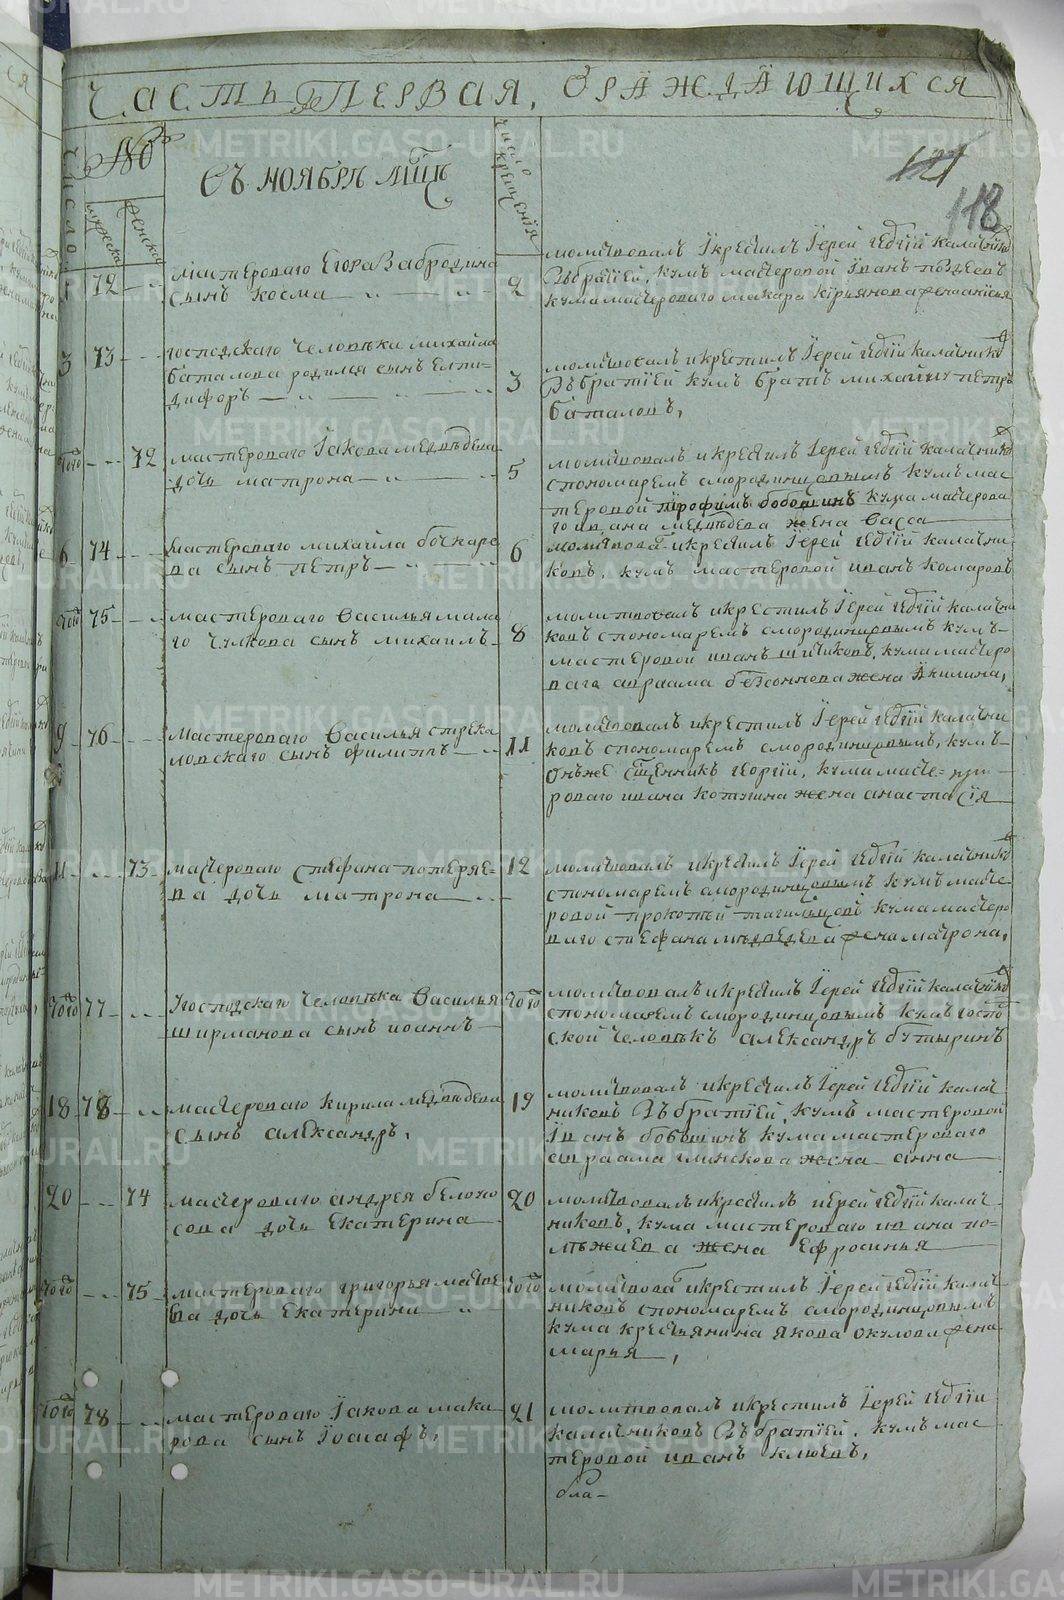 Часть Первая, О Раждающихся
121
118
Число
№
мужеска
женска
Въ ноябрѣ мцѣ
число крещенія
1 72 мастероваго Егора Забродина
сынъ косма
2 молитвовалъ Iкрестилъ Iерей Георгiй калачниковъ
Зъ братiей, кумъ мастеровой Iванъ
кума мастероваго макара кирьянова жена анисья
3 73 господскаго человѣка михаила
баталова родился сынъ Елпи-
дифоръ
3 молитвовалъ икрестилъ Iерей Георгiй калачниковъ
Зъ братiей кумъ братъ михайлу петръ
баталовъ,
того 72 мастероваго Iакова медвѣдева
дочь матрона
5 молитвовалъ икрестилъ Iерей Георгiй калачниковъ
спономаремъ смородинцовымъ кумъ мас
теровой трофимъ бобошинъ кума мастерова
го ивана медвѣдева жена васса
6 74 мастероваго михаила бочкаре
ва сынъ петръ
6 молитвовалъ икрестилъ Iерей Георгiй калачни-
ковъ, кумъ мастеровой иванъ комаровъ
того 75 мастероваго василья мала
го чулкова сынъ михаилъ
8 молитвовалъ икрестилъ Iерей Георгiй калачни
ковъ спономаремъ смородинцовымъ кумъ
мастеровой иванъ шичиковъ, кума мастеро
ваго авраама безсонова жена Акилина,
9 76 мастероваго василья стрека
ловскаго сынъ филиппъ
11 молитвовалъ икрестилъ Iерей Георгiй калачни
ковъ спономаремъ смородинцовымъ, кумъ
онъже сщенникъ георгiй, кума масте-
роваго ивана котугина жена анастасiя
11 73 мастероваго стефана потеряе-
ва дочь матрона
12 молитвовалъ икрестилъ Iерей Георгiй калачниковъ
спономаремъ смородинцовымъ кумъ масте
ровой прокопей тагильцовъ кума мастеро
ваго стефана медведева жена матрона,
того 77 господскаго человѣка василья
ширманова сынъ иоаннъ
того молитвовалъ икрестилъ Iерей Георгiй калачниковъ
спономаремъ смородинцовымъ кумъ господ
ской человѣкъ александръ бутыринъ
18 78 мастероваго кирила медвѣдева
сынъ александръ,
19 молитвовалъ икрестилъ Iерей Георгiй калач
никовъ Зъ братiей, кумъ мастеровой
Iванъ бобошинъ кума мастероваго
авраама глинскова жена анна
20 74 мастероваго андрея белоно
сова дочь Екатерина
20 молитвовалъ икрестилъ иерей Георгiй калач-
никовъ, кума мастероваго ивана по-
лѣжаева жена Ефросинья
того 75 мастероваго григорья матве
ва дочь Екатерина
того молитвовалъ икрестилъ Iерей Георгiй калач
никовъ спономаремъ смородинцовымъ
кума крестьянина якова окулова жена
марья,
того 78 мастероваго Iакова мака
рова сынъ Iосиафъ,
21 молитвовалъ икрестилъ Iерей Георгiй
калачниковъ Зъ братiей, кумъ мас
теровой иванъ клюевъ,
бла-
METRIKI.GASO-URAL.RU